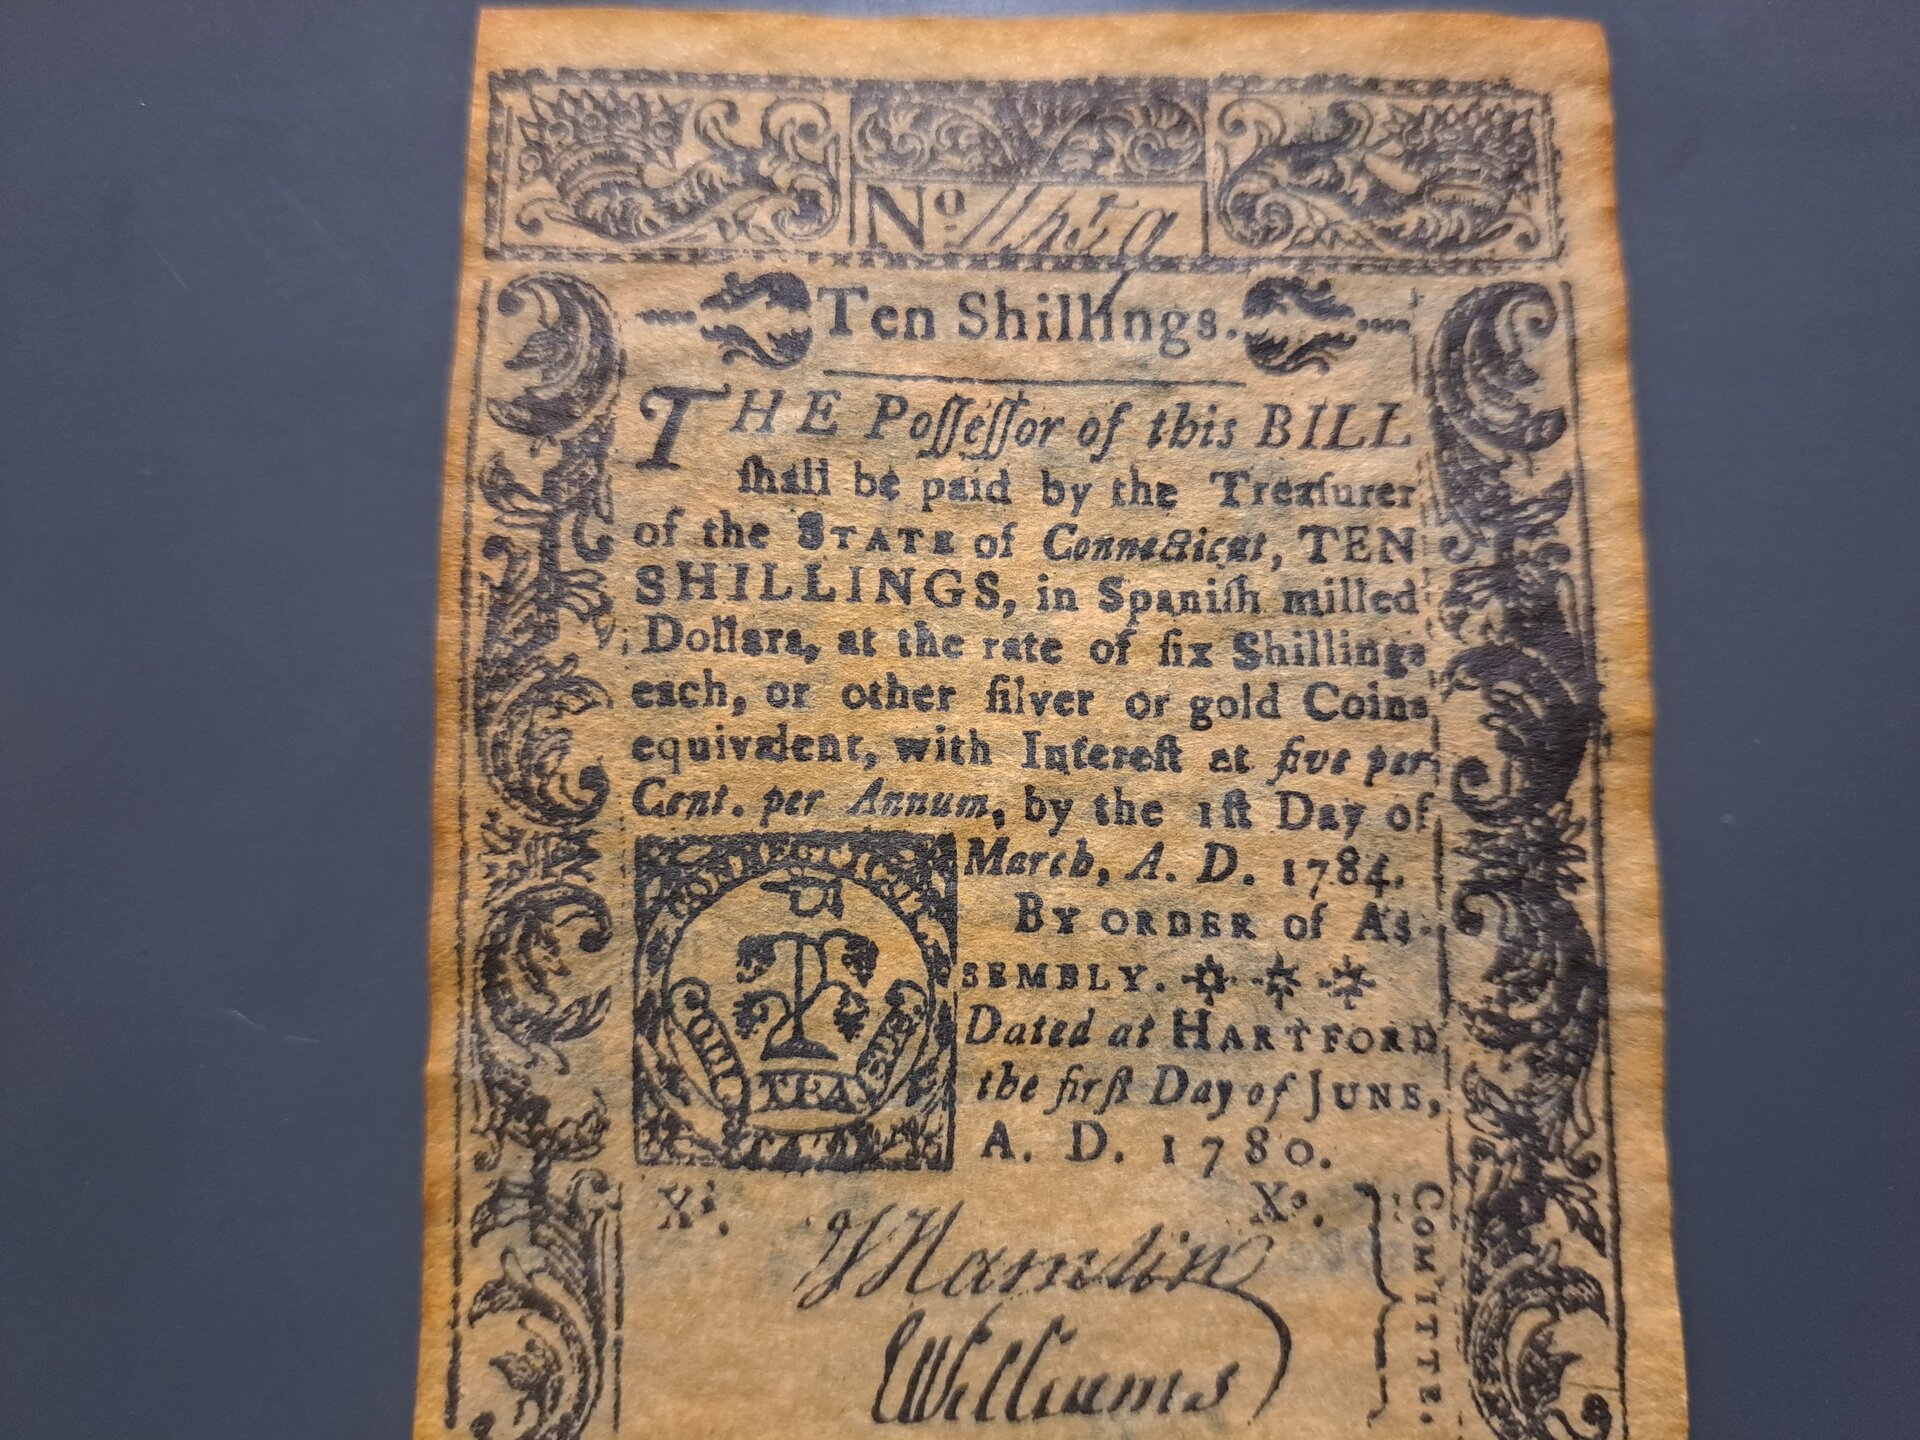 Nº
Ten Shillings.
THE Poſſeſſor of this BILL
ſhall be paid by the Treaſurer
of the STATE of Connecticut, TEN
SHILLINGS, in Spaniſh milled
Dollars, at the rate of ſix Shillings
each, or other ſilver or gold Coins
equivalent, with Intereſt at five per
Cent. per Annum, by the 1ſt Day of
March, A. D. 1784.
BY ORDER of AS-
SEMBLY.
Dated at HARTFORD
the firſt Day of JUNE,
A. D. 1780.
CONNECTICUT
QUI TRA SUS.
Xs. Xs.
JHamlin
Williams
COMITTE.